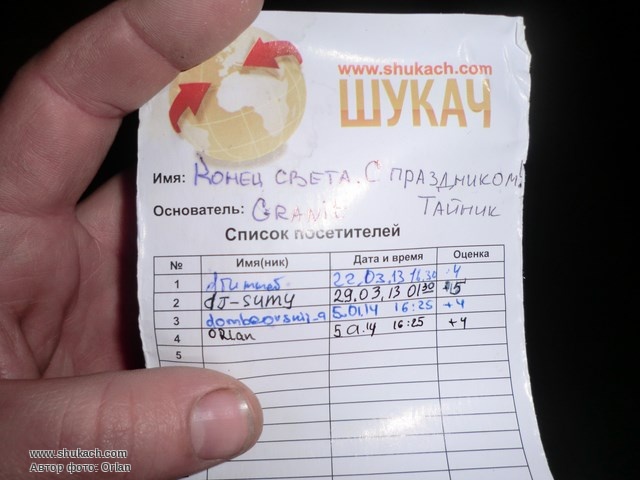 www.shukach.com
ШУКАЧ
Имя: Конец света. С праздником!
Основатель: Granit Тайник
Список посетителей
№ Имя(ник) Дата и время Оценка
1 22,03,13 16,30 4
2 dJ-sumy 29,03,13 01:30 +5
3 5.01.14 16:25 +4
4 Orlan 5.01.14 16:25 +4
5
www.shukach.com
Автор фото: Orlan